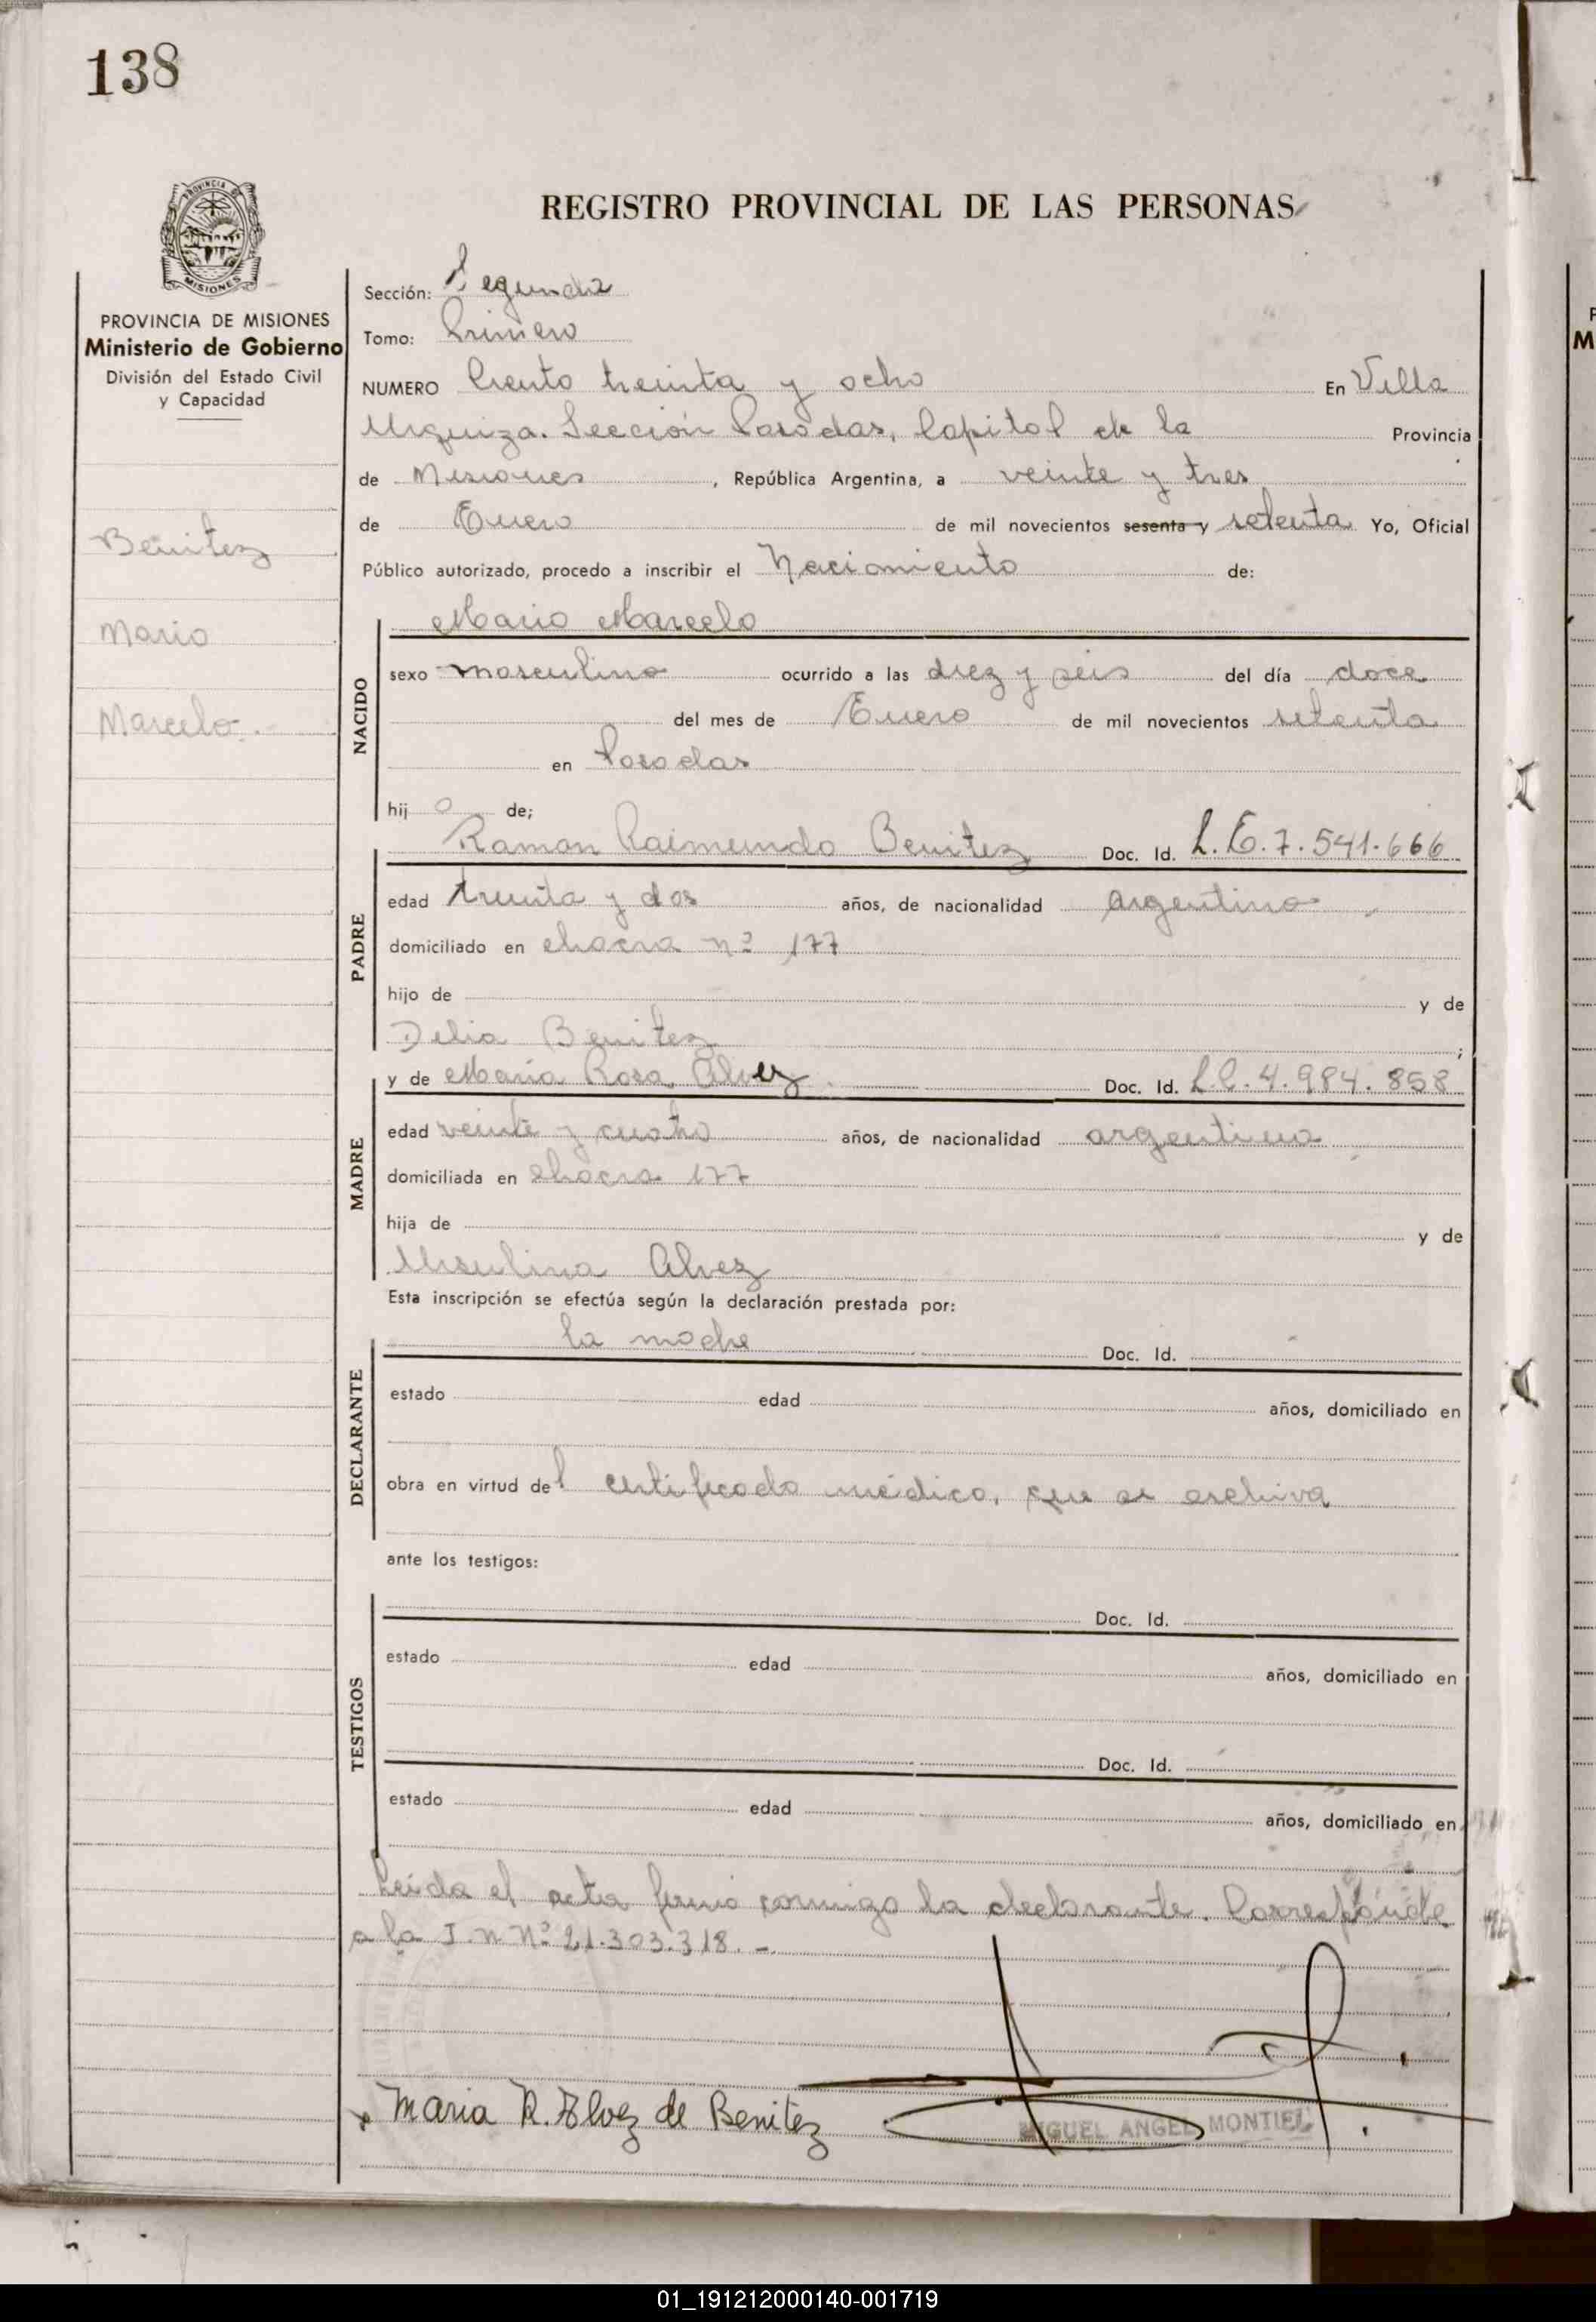 138
PROVINCIA DE
MISIONES
REGISTRO PROVINCIAL DE LAS PERSONAS
PROVINCIA DE MISIONES
Ministerio de Gobierno
División del Estado Civil
y Capacidad
Benitez
Mario
Marcelo.
Sección: Segunda
Tomo: Primero
NUMERO Ciento treinta y ocho En Villa
Urquiza. Sección Posadas, Capital de la Provincia
de Misiones, República Argentina, a veinte y tres
de Enero de mil novecientos sesenta y setenta Yo, Oficial
Público autorizado, procedo a inscribir el Nacimiento de:
NACIDO
Mario Marcelo
sexo masculino ocurrido a las diez y seis del día doce
del mes de Enero de mil novecientos setenta
en Posadas
hij o de;
PADRE
Ramon Raimundo Benitez Doc. Id. L.E.7.541.666
edad treinta y dos años, de nacionalidad argentino
domiciliado en chacra nº 177
hijo de y de
Delia Benitez ;
MADRE
y de Maria Rosa Alvez Doc. Id. L.C.4.984.858
edad veinte y cuatro años, de nacionalidad argentina
domiciliada en chacra 177
hija de y de
Ursulina Alvez
Esta inscripción se efectúa según la declaración prestada por:
DECLARANTE
la madre Doc. Id.
estado edad años, domiciliado en
obra en virtud del certificado médico, que se archiva
ante los testigos:
TESTIGOS
Doc. Id.
estado edad años, domiciliado en
Doc. Id.
estado edad años, domiciliado en
Leida el acta firmó conmigo la declarante. Corresponde
a la I.N Nº 21.303.318. -
Maria R. Alvez de Benitez
MIGUEL ANGEL MONTIEL
01_191212000140-001719